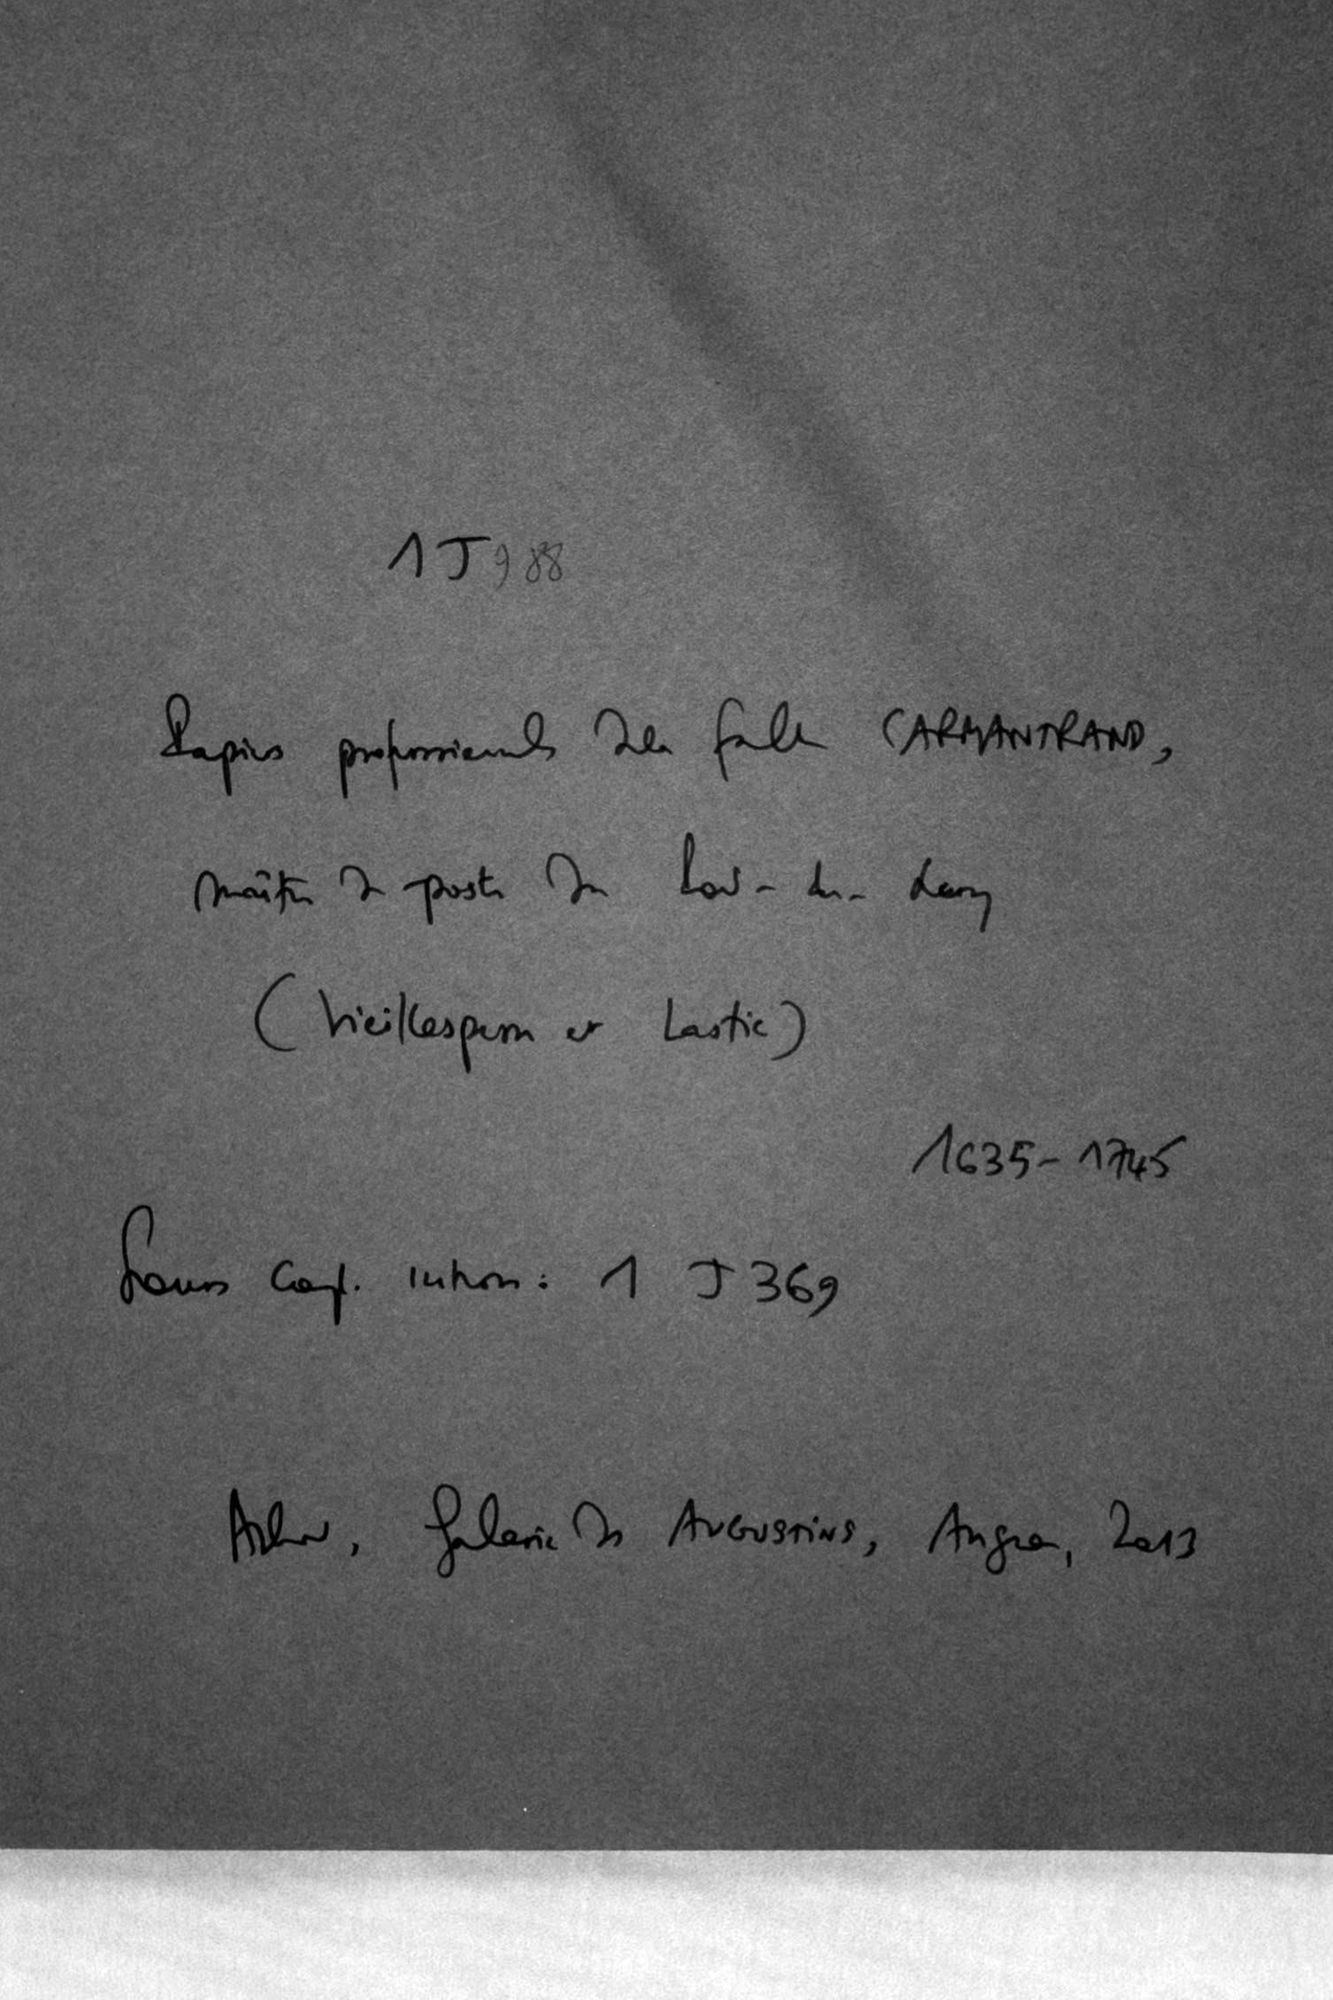 1 J 988
Papiers professionnels de la famille CARMANTRAND,
maître de poste du Pont-du-Lery
(Vieillespesse et Lastic)
1635-1745
Sources compl. internes : 1 J 369
Achat, Galerie des AUGUSTINS, Angers, 2013